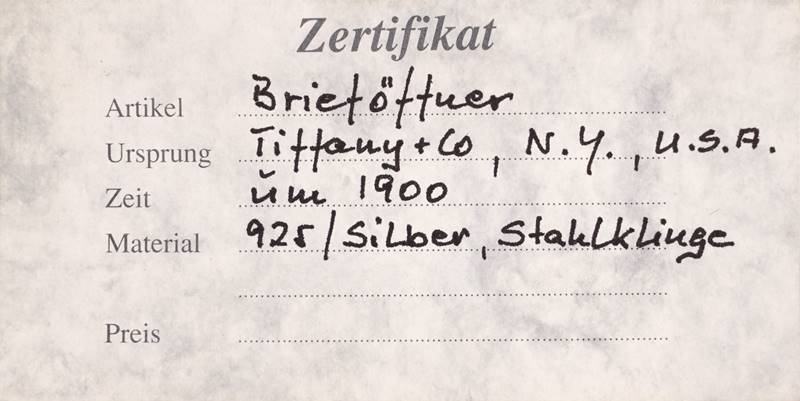 Zertifikat
Artikel Brieföffner
Ursprung Tiffany + Co, N.Y., U.S.A.
Zeit um 1900
Material 925/Silber, Stahlklinge
Preis